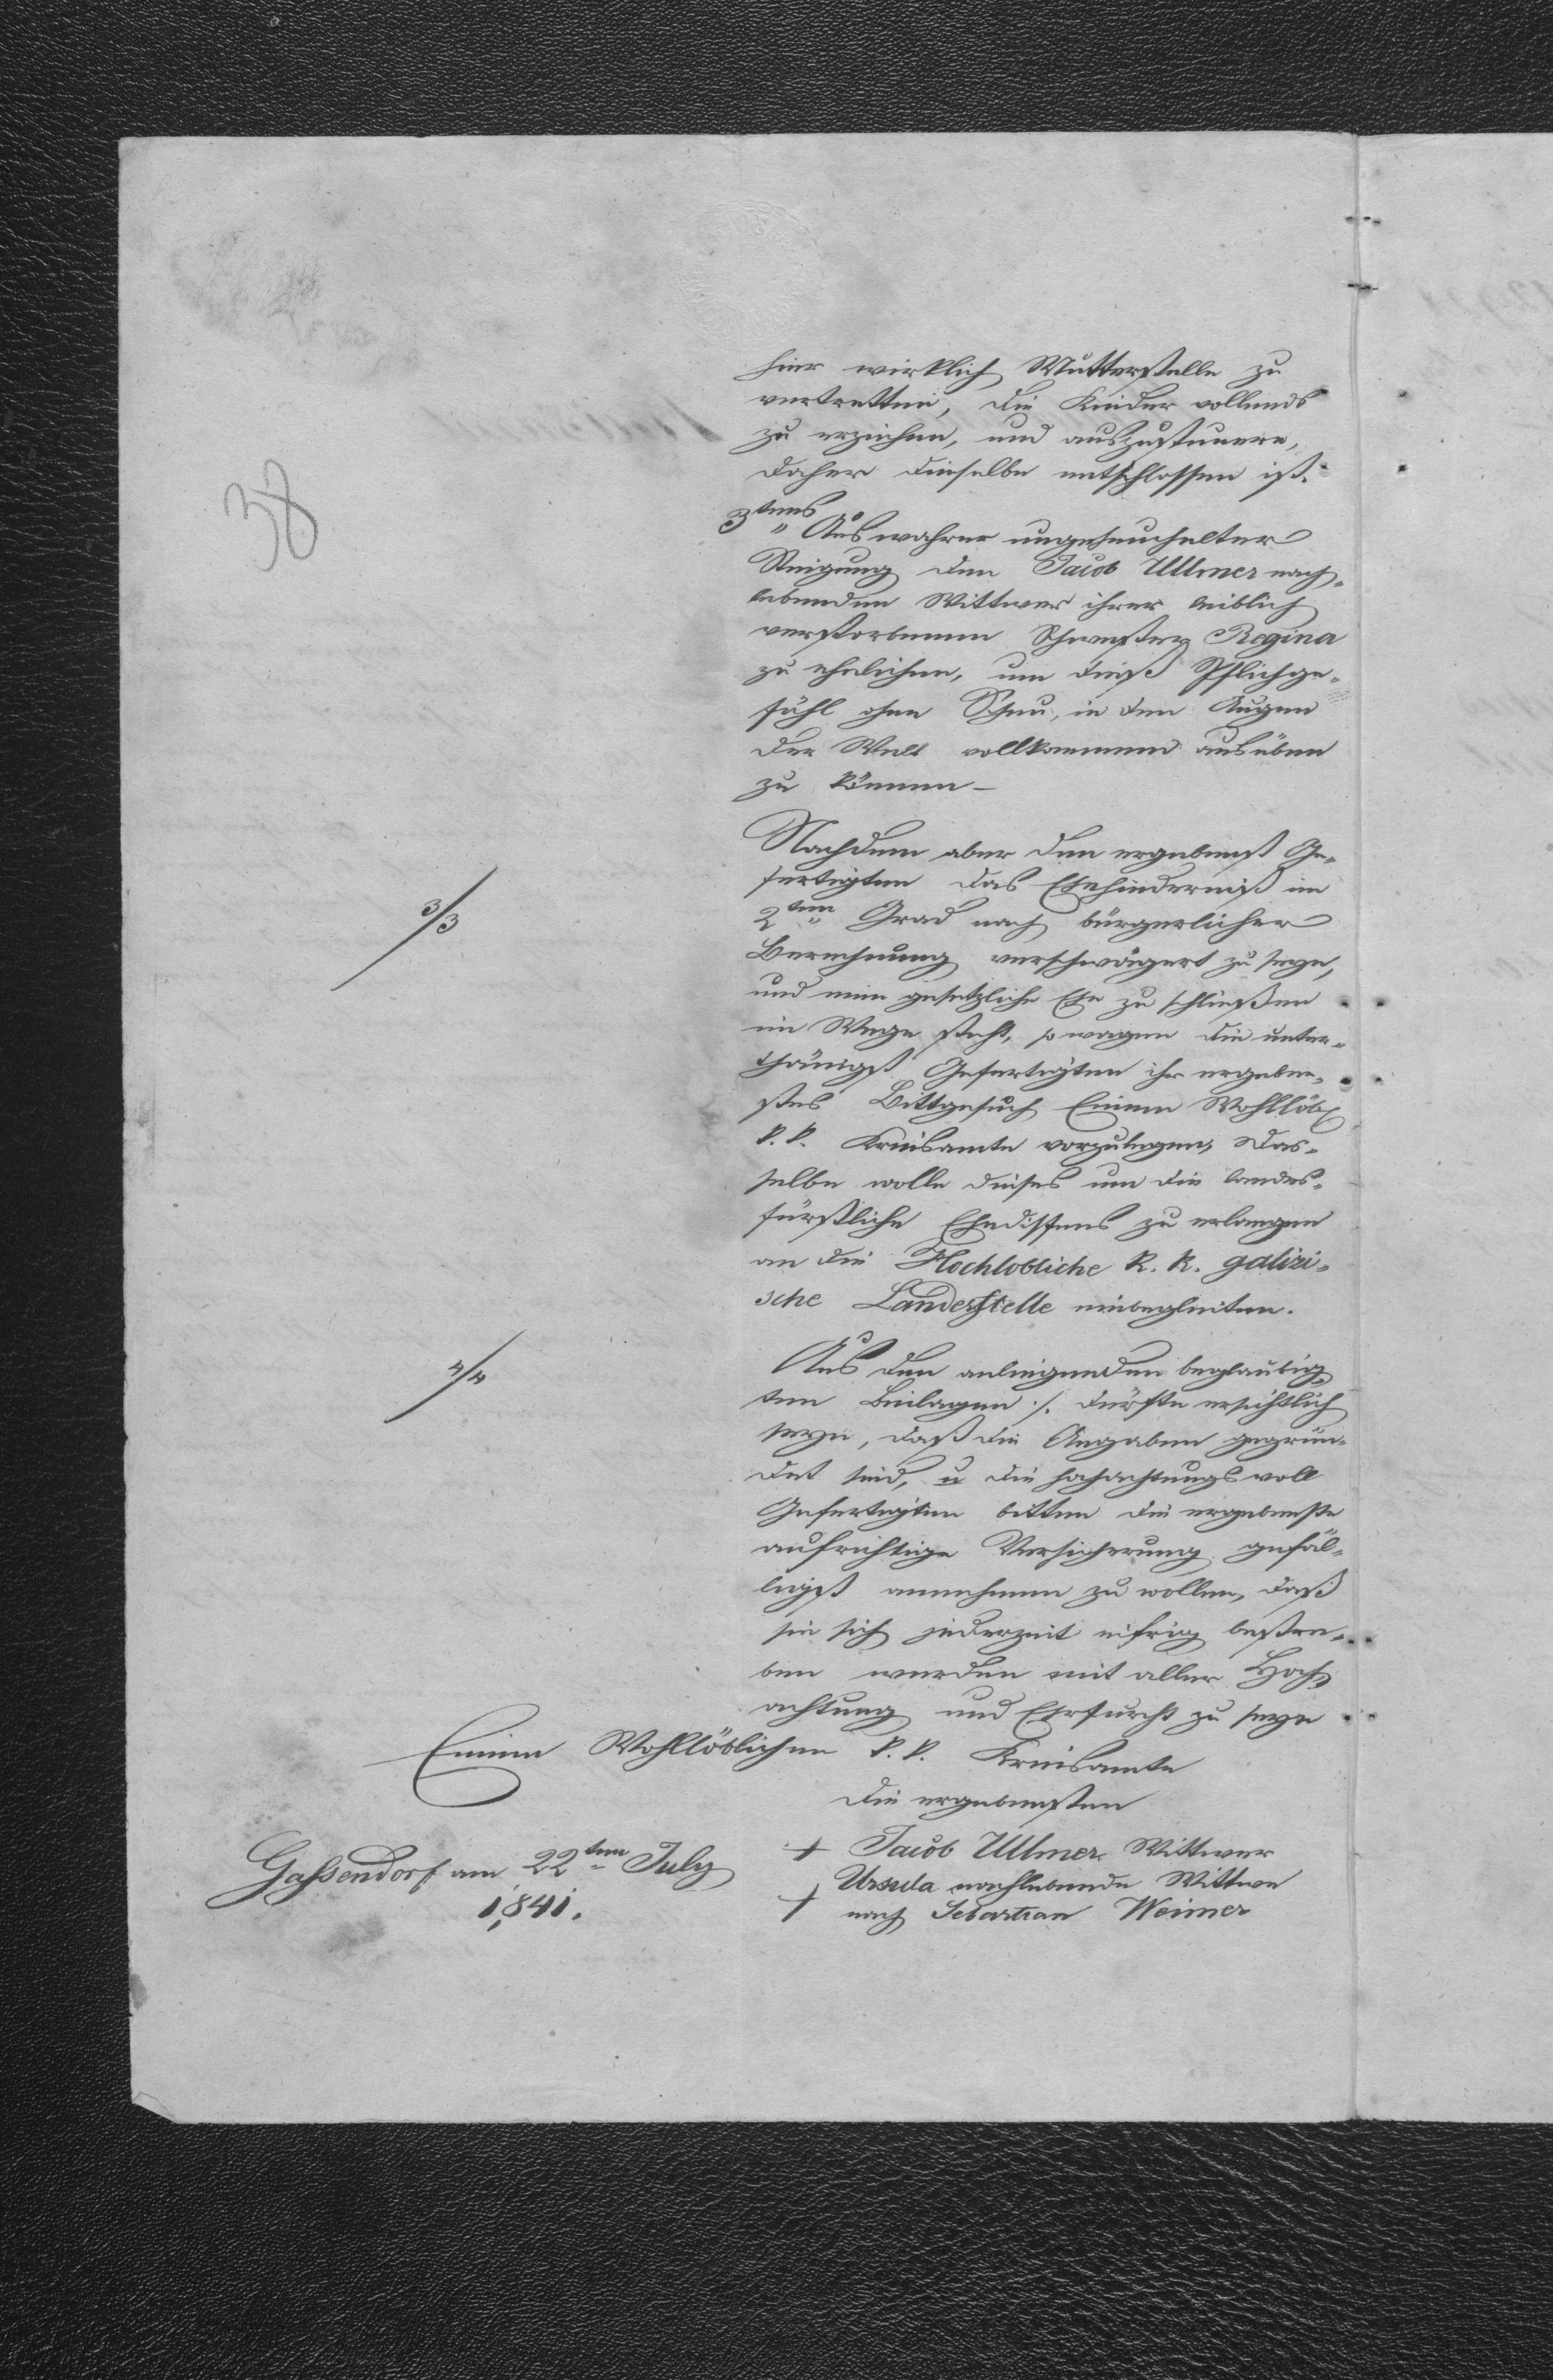 38
hier wirklich Mutterstelle zu
vertretten, die Kinder vollends
zu erziehen, und auszusteuern,
daher dieselbe entschlossen ist.
3tens Aus wahrer ungeheuchelter
Neigung den Jacob Ullmer nach-
lebenden Wittwer ihrer leiblich
verstorbenen Schwester Regina
zu ehelichen, um dieß Pflichge-
fühl ohne Scheu, in den Augen
der Welt vollkommen ausüben
zu können —
Nachdem aber den ergebenst Ge-
fertigten das Ehehinderniß im
3/3
2ten Grad nach bürgerlicher
Berechnung verschwägert zu seyn,
und eine gesetzliche Ehe zu schließen
im Wege steht, so wagen die unter-
thänigst Gefertigten ihr ergeben-
stes Bittgesuch Einem Wohllöbl
k. k. Kreisamte vorzulegen, Das-
selbe wolle dieses um die landes-
fürstliche Ehedispens zu erlangen
an die Hochlobliche K. K. galizi-
sche Landesstelle einbegleiten.
4/4
Aus den anliegenden beglaubig-
ten Beilagen ·/. dürfte ersichtlich
seyn, daß die Angaben gegrün-
det sind, u die hochachtungsvoll
Gefertigten bitten die ergebenste
aufrichtige Versicherung gefäl-
ligst annehmen zu wollen, daß
sie sich jederzeit eifrig bestre-
ben werden mit aller Hoch-
achtung und Ehrfurcht zu seyn
Einem Wohllöblichen k. k. Kreisamte
die ergebensten
Gassendorf am 22ten July
1841.
+ Jacob Ullmer Wittwer
Ursula nachlebende Wittwe
+ nach Sebastian Weimer